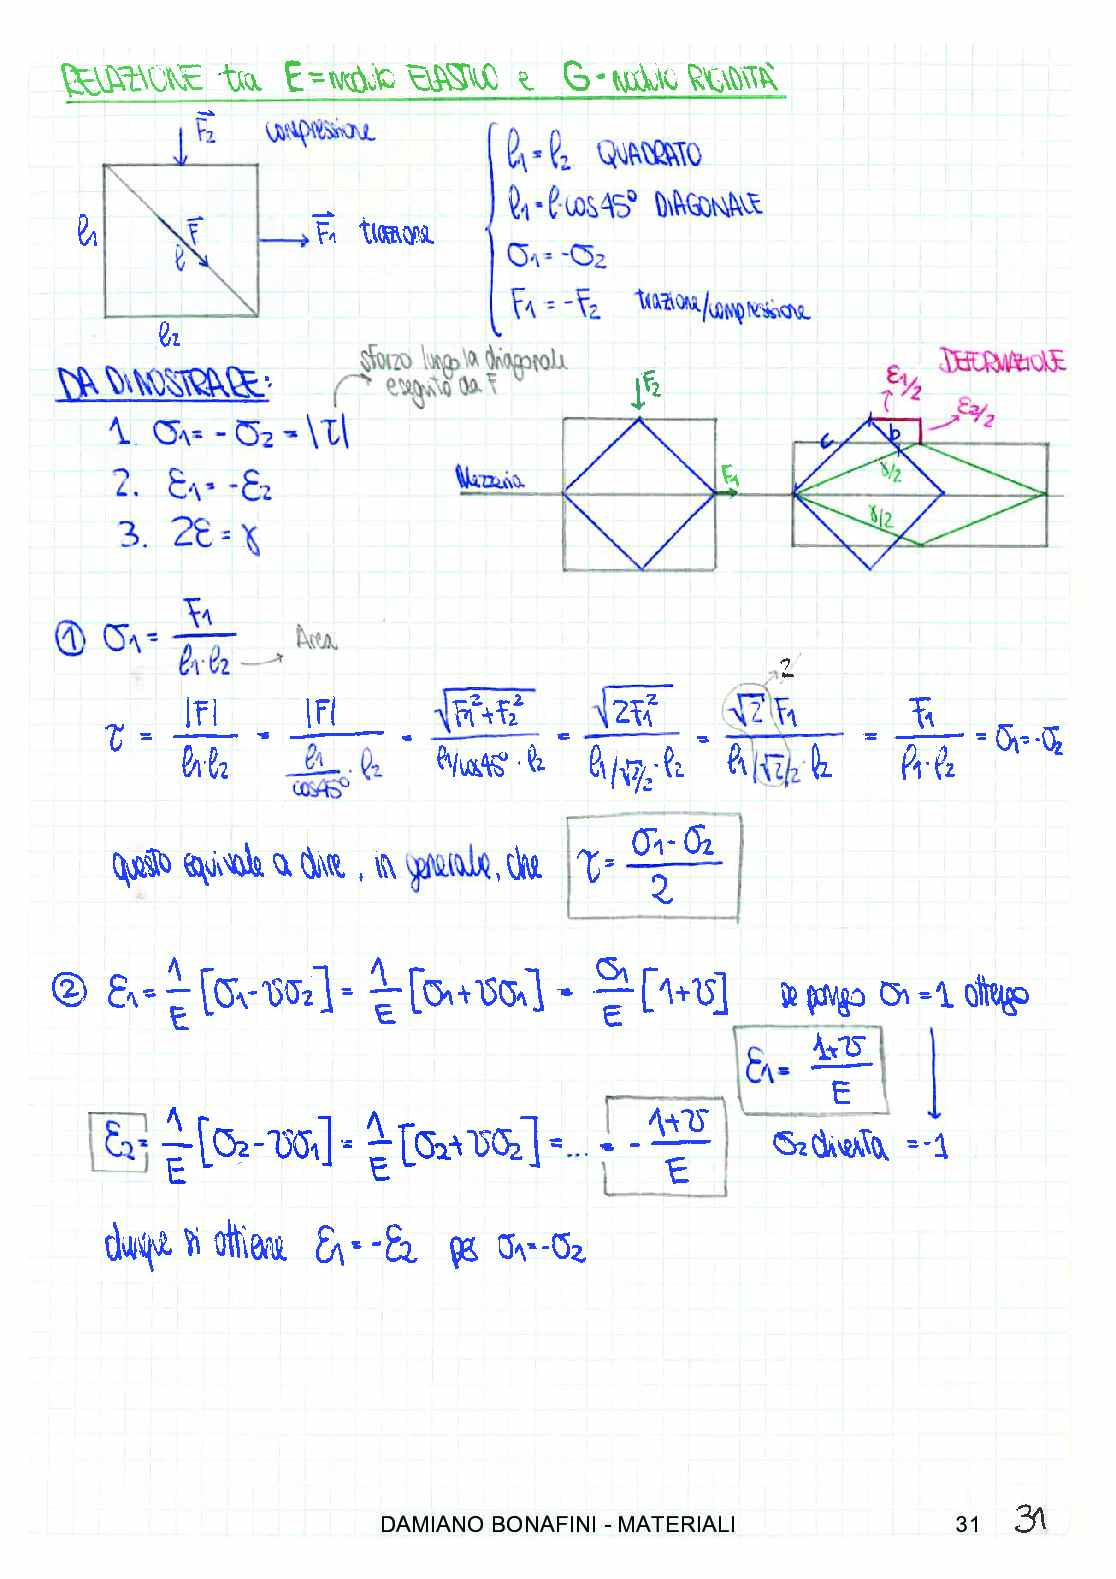 RELAZIONE tra E=modulo ELASTICO e G-modulo RIGIDITÀ
F₂ compressione
ℓ₁=ℓ₂ QUADRATO
ℓ₁=ℓ·cos45° DIAGONALE
σ₁=-σ₂
F₁=-F₂ trazione/compressione
ℓ₁
F
ℓ
F₁ trazione
ℓ₂
sforzo lungo la diagonale
eseguito da F
DA DIMOSTRARE:
1. σ₁=-σ₂=|τ|
2. ε₁=-ε₂
3. 2ε=γ
F₂
Mezzeria
F₁
DEFORMAZIONE
ε₁/₂
ε₂/₂
c
b
γ/2
γ/2
① σ₁= F₁/(ℓ₁·ℓ₂) → Area
2
τ = |F|/(ℓ₁·ℓ₂) = |F|/((ℓ₁/cos45°)·ℓ₂) = √(F₁²+F₂²)/(ℓ₁/cos45°·ℓ₂) = √(2F₁²)/(ℓ₁/√2/2·ℓ₂) = √2 F₁/(ℓ₁/√2/2·ℓ₂) = F₁/(ℓ₁·ℓ₂) = σ₁=-σ₂
questo equivale a dire, in generale, che τ= (σ₁-σ₂)/2
② ε₁= 1/E [σ₁-υσ₂] = 1/E [σ₁+υσ₁] = σ₁/E [1+υ] se pongo σ₁=1 ottengo
ε₁= (1+υ)/E
ε₂= 1/E [σ₂-υσ₁] = 1/E [σ₂+υσ₂] =...= -(1+υ)/E σ₂ diventa =-1
dunque si ottiene ε₁=-ε₂ per σ₁=-σ₂
DAMIANO BONAFINI - MATERIALI 31 31